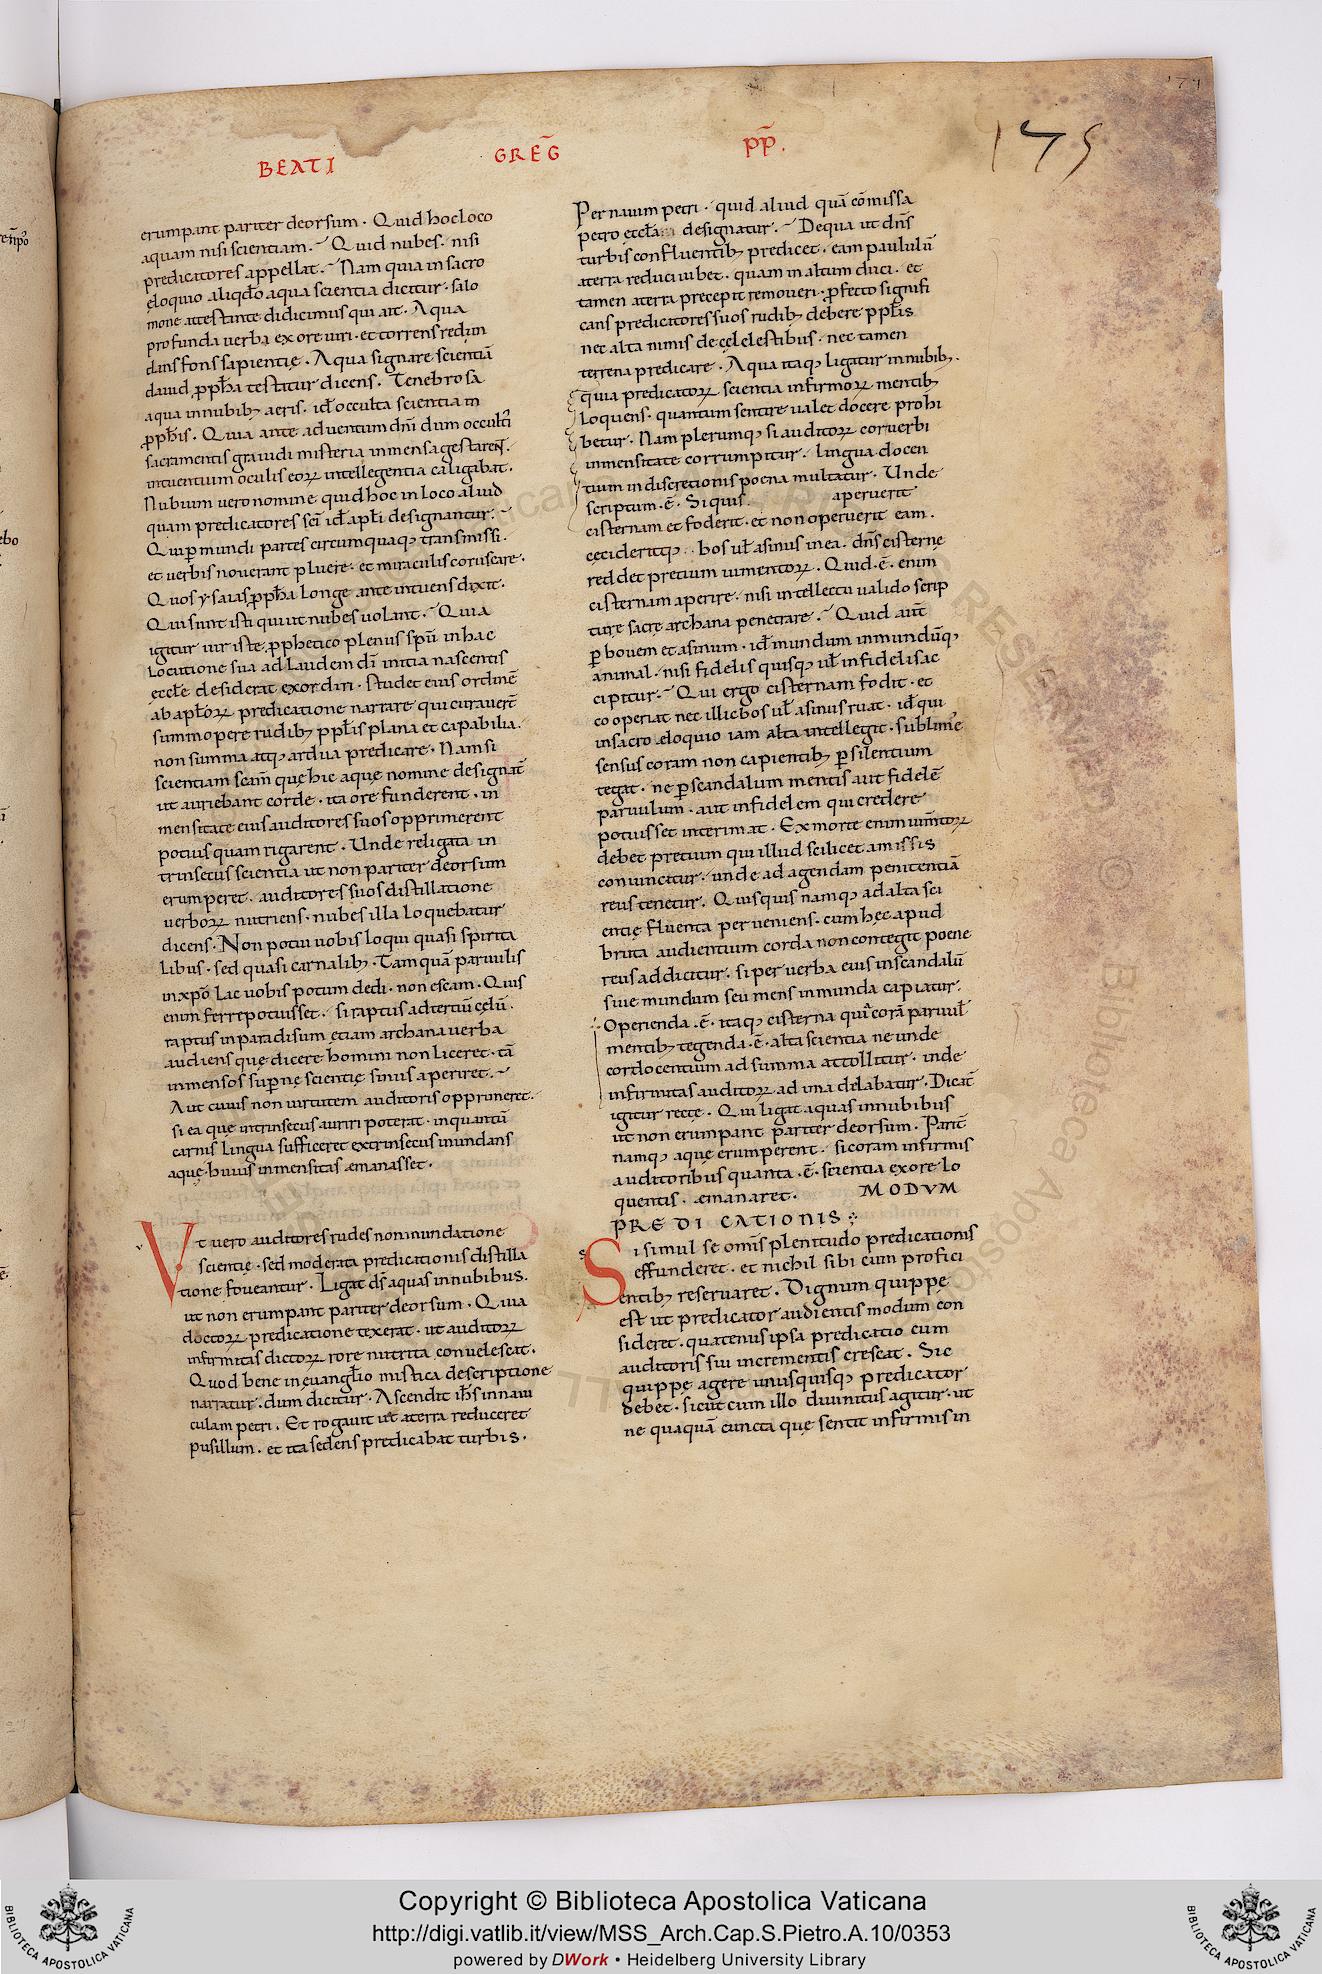 171
175
BEATI GREḠ PP̄.
erumpant pariter deorsum · Quid hoc loco
aquam nisi scientiam · Quid nubes · nisi
predicatores appellat · Nam quia in sacro
ęloquio aliqđo aqua scientia dicitur · salo
mone attestante didicimus qui ait · Aqua
profunda uerba ex ore uiri · et torrens redun
dans fons sapientię · Aqua signare scientiā
dauid ꝓpħa testatur dicens · Tenebrosa
aqua in nubibꝫ aeris · id̄ occulta scientia in
ꝓpħis · Quia ante aduentum dn̄i dum occulti
sacramentis grauidi misteria inmensa gestareñ ·
intuentium oculis eoꝝ intellegentia caligabat ·
Nubium uero nomine quid hoc in loco aliud
quam predicatores sc̄i id̄ apłi designantur ·
Qui ꝑ mundi partes circumquaqꝫ transmissi ·
et uerbis nouerant pluere · et miraculis coruscare ·
Quos ysaias ꝓpħa longe ante intuens dixit ·
Qui sunt isti qui ut nubes uolant · Quia
igitur uir iste ꝓphetico plenus sp̄u in hac
locutione sua ad laudem dī initia nascentis
ęccłe desiderat exordiri · studet eius ordinē
ab apłoꝝ predicatione narrare qui curauer̄t
summopere rudibꝫ pp̄lis plana et capabilia ·
non summa atqꝫ ardua predicare · Nam si
scientiam sc̄am quę hic aque nomine designat̄
ut auriebant corde · ita ore funderent · in
mensitate eius auditores suos opprimerent
potius quam rigarent · Unde religata in
trinsecus scientia ut non pariter deorsum
erumperet · auditores suos distillatione
uerboꝝ nutriens · nubes illa loquebatur
dicens · Non potui uobis loqui quasi spirita
libus · sed quasi carnalibꝫ · Tamquā paruulis
in xp̄o lac uobis potum dedi · non escam · Quis
enim ferre potuisset · si raptus ad tertiū cęlū ·
raptus in paradisum ętiam archana uerba
audiens que dicere homini non liceret · tā
inmensos supernę scientię sinus aperiret ·
Aut cuius non uirtutem auditoris opprimeret ·
si ea quę intrinsecus auriri poterat · inquantū
carnis lingua sufficeret extrinsecus inundans
aquę huius inmensitas emanasset ·
Vt uero auditores rudes non inundatione
scientię · sed moderata predicationis distilla
tione foueantur · Ligat ds̄ aquas in nubibus ·
ut non erumpant pariter deorsum · Quia
doctoꝝ predicatione texerat · ut auditoꝝ
infirmitas dictoꝝ rore nutrita conuelescat ·
Quod bene in ęuangłio mistica descriptione
narratur · dum dicitur · Ascendit iħs in naui
culam petri · Et rogauit ut a terra reduceret
pusillum · et ita sedens predicabat turbis ·
Per nauim petri · quid aliud quā cōmissa
petro ęccła designatur · De qua ut dn̄s
turbis confluentibꝫ predicet · eam paululū
a terra reduci iubet · quam in altum duci · et
tamen a terra precepit remoueri · ꝓfecto signifi
cans predicatores suos rudibꝫ debere pp̄lis
nec alta nimis de cęlelestibus · nec tamen
terrena predicare · Aqua itaqꝫ ligatur in nubibꝫ ·
quia predicatoꝝ scientia infirmoꝝ mentibꝫ
loquens · quantum sentire ualet docere prohi
betur · Nam plerumqꝫ si auditoꝝ cor uerbi
inmensitate corrumpitur · lingua docen
tium indiscretionis poena multatur · Unde
scriptum · ē · Si quis aperuerit
cisternam et foderit · et non operuerit eam ·
cęcideritqꝫ · bos uł asinus in ea · dn̄s cisternę
reddet pretium iumentoꝝ · Quid · ē · enim
cisternam aperire · nisi intellectu ualido scrip
ture sacrę archana penetrare · Quid aut̄
ꝑ bouem et asinum · id̄ mundum inmundūqꝫ
animal · nisi fidelis quisqꝫ uł infidelis ac
cipitur · Qui ergo cisternam fodit · et
cooperiat nec illic bos uł asinus ruat · id̄ qui
in sacro eloquio iam alta intellegit · sublime
sensus coram non capientibꝫ ꝑ silentium
tegat · ne ꝑ scandalum mentis aut fidelē
paruulum · aut infidelem qui credere
potuisset interimat · Ex morte enim iumtoꝝ
debet pretium qui illud scilicet amissis
conuincitur · unde ad agendam penitentiā
reus tenetur · Quisquis namqꝫ ad alta sci
entię fluenta perueniens · cum hęc apud
bruta audientium corda non contegit poene
reus addicitur · si per uerba eius in scandalū
siue mundum seu mens inmunda capiatur ·
Operienda · ē · itaqꝫ cisterna quia corā paruuł
mentibꝫ tegenda · ē · alta scientia ne unde
cor docentium ad summa attollitur · inde
infirmitas auditoꝝ ad ima delabatur · Dicat̄
igitur recte · Qui ligat aquas in nubibus
ut non erumpant pariter deorsum · Parit̄
namqꝫ aquę erumperent · si coram infirmis
auditoribus quanta · ē · scientia ex ore lo
quentis · emanaret · MODVM
PREDICATIONIS
Si simul se omīs plenitudo predicationis
effunderet · et nichil sibi cum profici
entibꝫ reseruaret · Dignum quippe
est ut predicator audientis modum con
sideret · quatenus ipsa predicatio cum
auditoris sui incrementis crescat · Sic
quippe agere unusquisqꝫ predicator
debet · sicut cum illo diuinitus agitur · ut
ne quaquā cuncta quę sentit infirmis in
Copyright © Biblioteca Apostolica Vaticana
http://digi.vatlib.it/view/MSS_Arch.Cap.S.Pietro.A.10/0353
powered by DWork • Heidelberg University Library
BIBLIOTECA APOSTOLICA VATICANA
BIBLIOTECA APOSTOLICA VATICANA